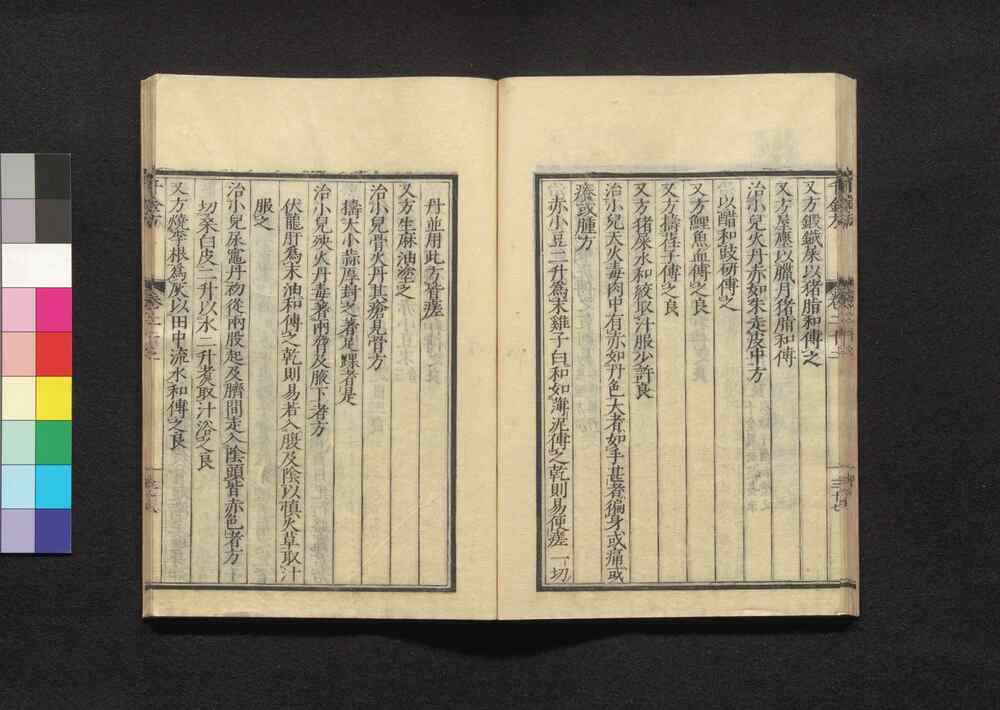 又方鍛鐵屎以猪脂和傅之
又方屋塵以臘月猪脂和傅
治小兒火丹赤如朱走皮中方
以醋和豉研傅之
又方鯉魚血傅之良
又方擣荏子傅之良
又方猪屎水和絞取汁服少許良
治小兒天火毒肉中有赤如丹色大者如手甚者徧身或痛或
痒或腫方
赤小豆二升爲末雞子白和如薄泥傅之乾則易便瘥一切
丹並用此方皆瘥
又方生麻油塗之
治小兒骨火丹其瘡見骨方
擣大小蒜厚封之著足踝者是
治小兒殃火丹毒著兩脅及腋下者方
伏龍肝爲末油和傅之乾則易若入腹及陰以慎火草取汁
服之
治小兒尿竈丹初從兩股起及臍間走入陰頭皆赤色者方
切桑白皮二升以水二升煮取汁浴之良
又方燒李根爲灰以田中流水和傅之良